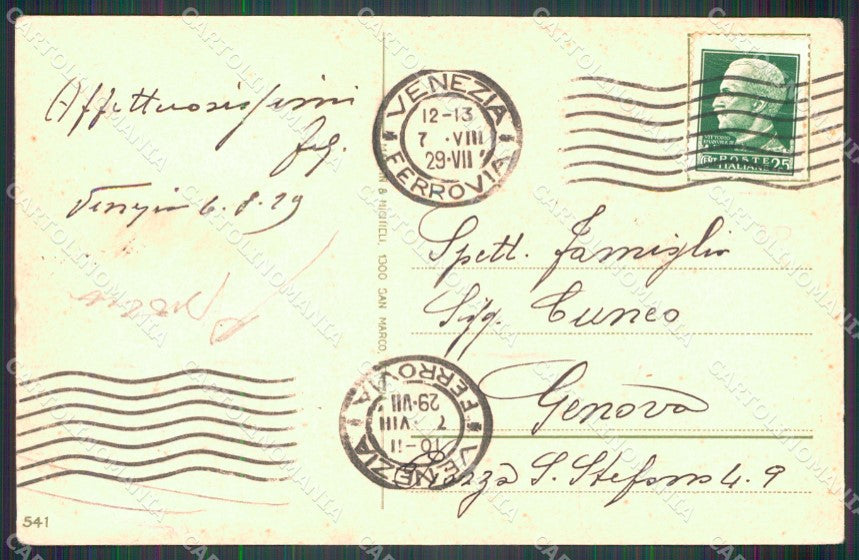 Affettuosissimi
Venezia 6.8.29
VENEZIA
12-13
7 ·VIII
29·VII
FERROVIA
POSTE 25
ITALIANE
Spett. Famiglia
Sigg. Cuneo
Genova
Piazza S. Stefano 4.9
& MISTICLI, 1300 SAN MARCO
VENEZIA
10-11
7 ·VIII
29·VII
FERROVIA
541
CARTOLINOMANIA